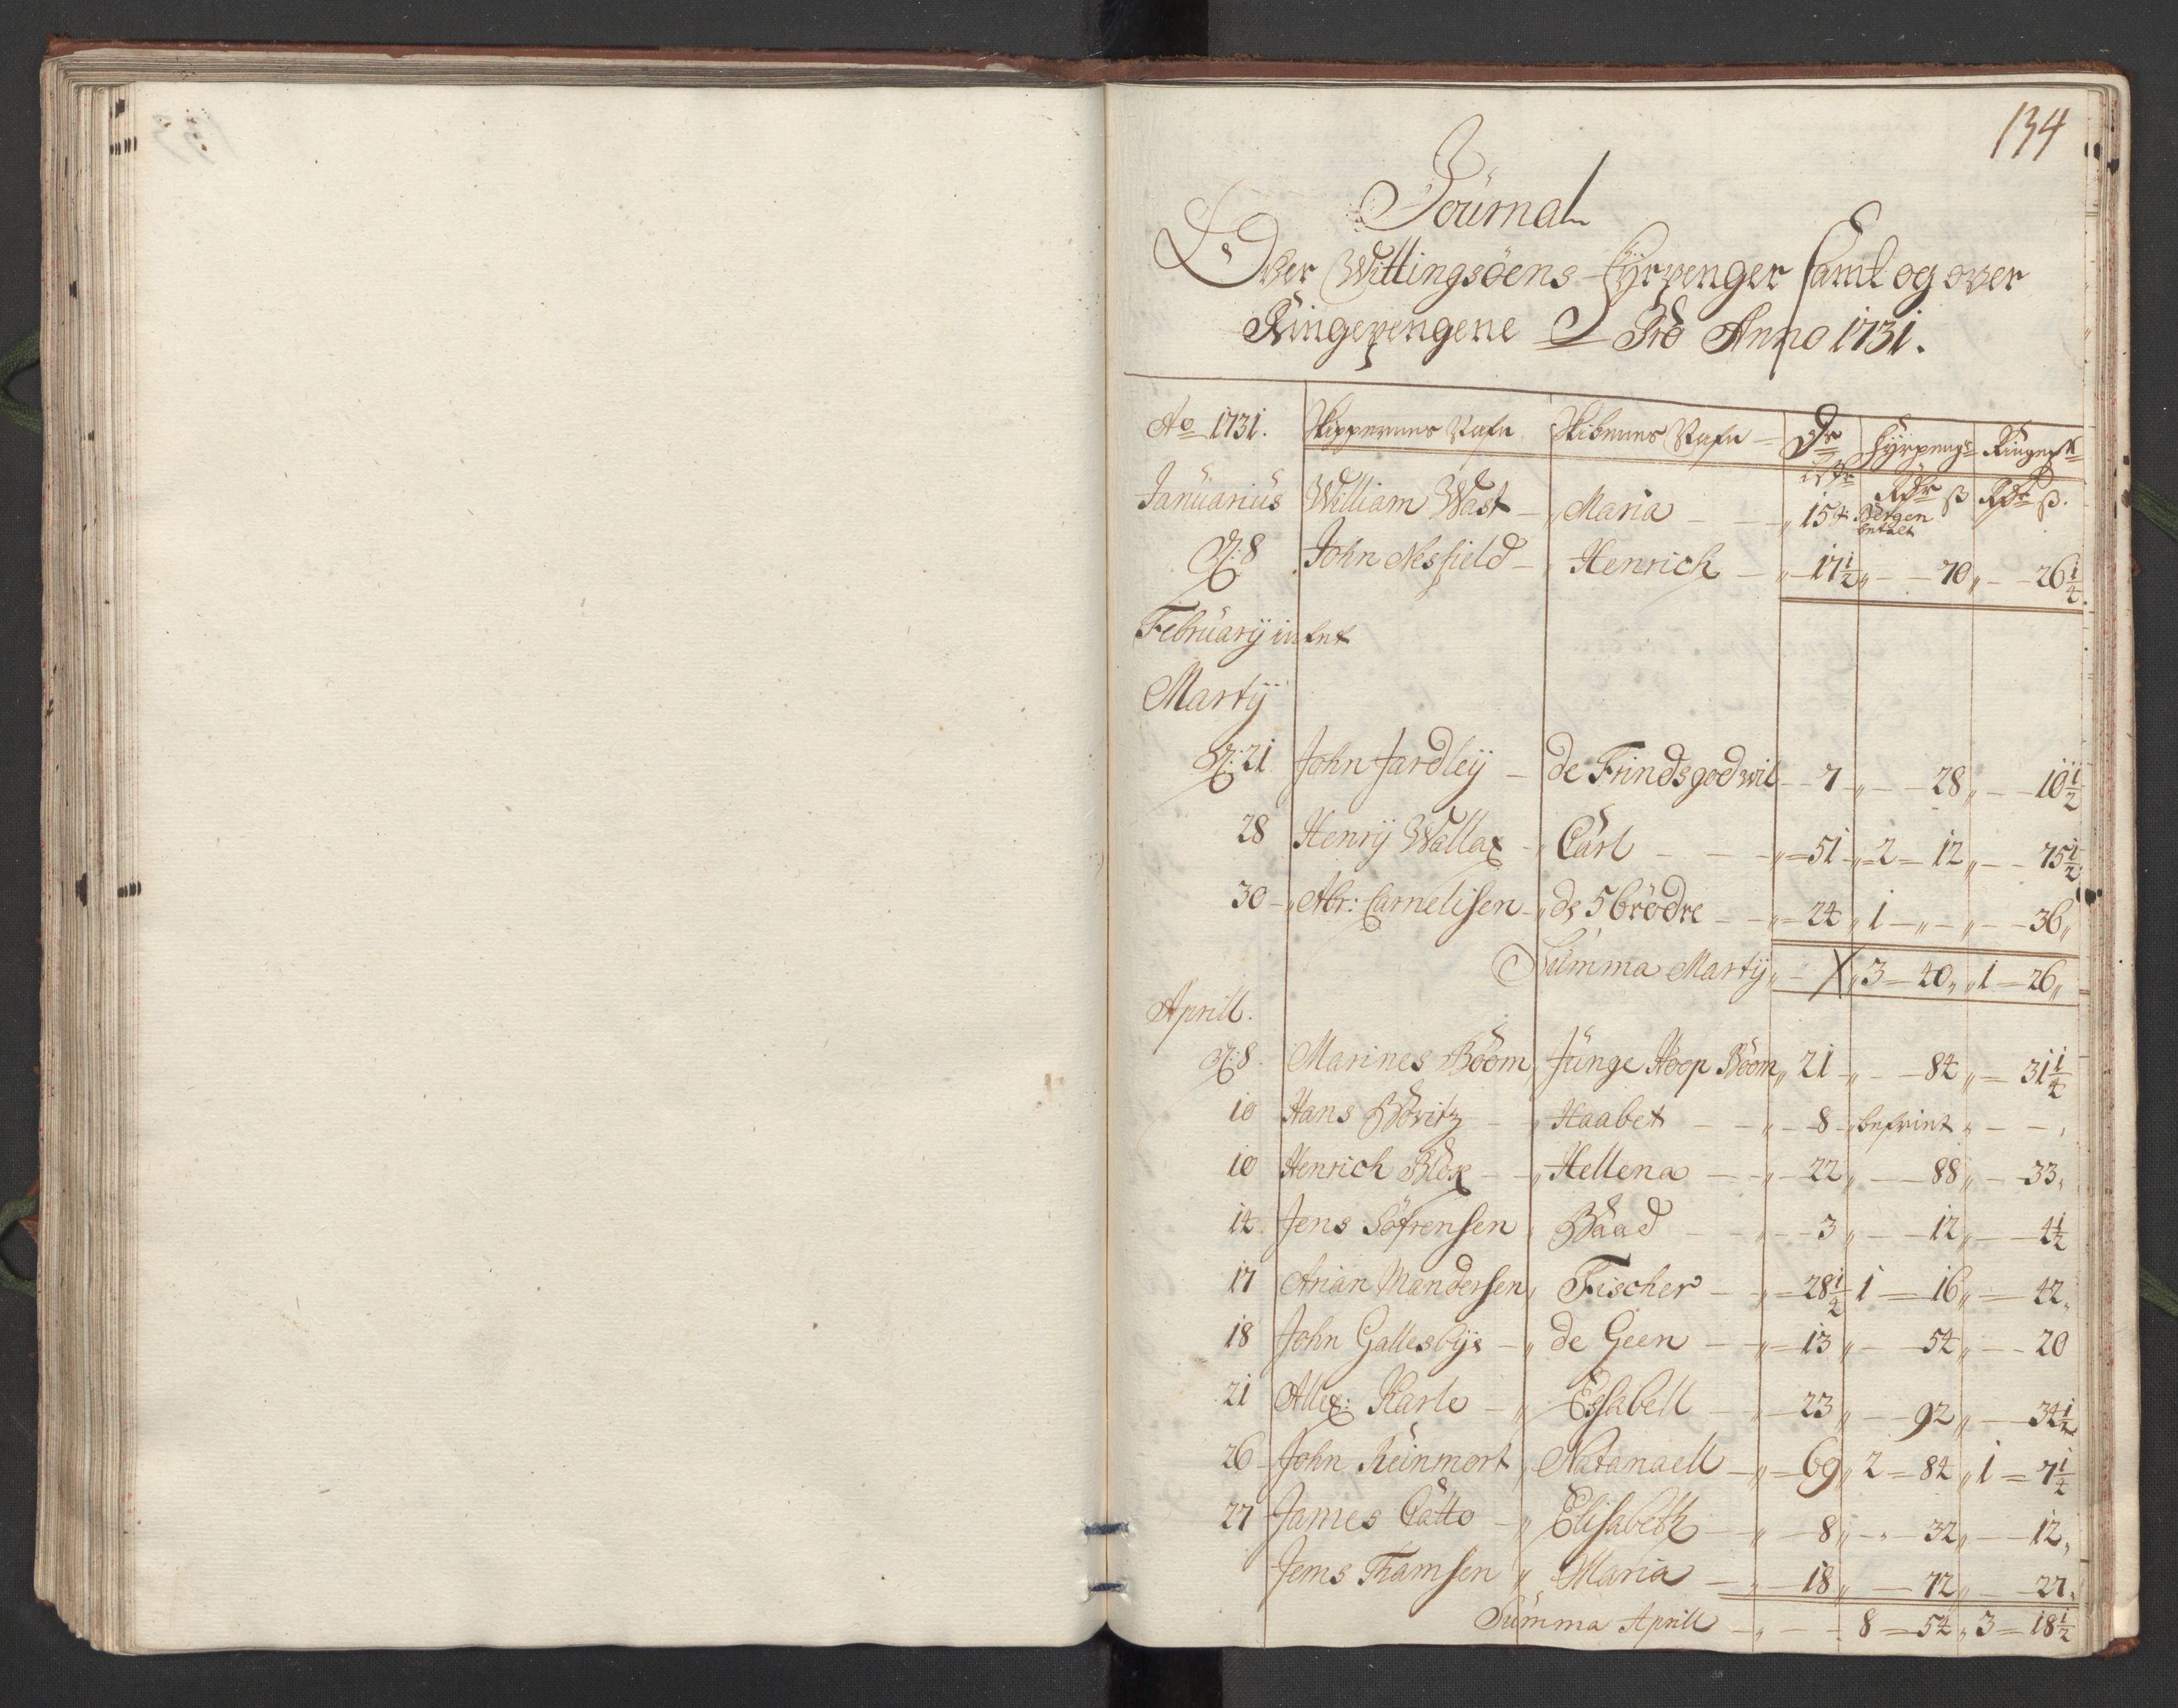 134
Journal
Over Wittingsöens fyrpenger samt og over
Ringepengene Pro Anno 1731.
Ao 1731. Skippernes Nafn Skibenes Nafn Dr fyrpeng Ringep
Lster Rdr ß Rdr ß.
Januarius William Wast Maria 154 Bergen betalt
D: 8 John Nesfield Henrich 17½ 70 26¼
February intet
Martij
D: 21 John Jardleÿ de Frindsgodwil 7 28 10½
28 Henrÿ Wallax Carl 51 2 12 75½
30 Abr: Carnelisen de 5 brödre 24 1 36
Summa Martij 3 40 1 26
Aprill.
D: 8 Marines Boom Junge Hoop Boom 21 84 31¼
10 Hans Boritz Haabet 8 befriet
10 Henrich Blox Hellena 22 88 33
14 Jens Söfrensen Baad 3 12 4½
17 Arian Mandersen Fischer 28½ 1 16 42
18 John Gallesbÿe de Geen 13 54 20
21 Allex: Karle Essabell 23 92 34½
26 John Reinmort Natanaell 69 2 84 1 7¼
27 James Catto Elisabeth 8 32 12
Jems Thamsen Maria 18 72 27
Summa Aprill 8 54 3 18½